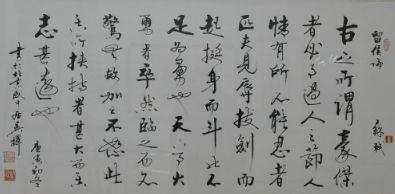 留侯论
苏轼
古之所谓豪杰
者必有过人之节人
情有所不能忍者
匹夫见辱拔剑而
起挺身而斗此不
足为勇也天下有大
勇者卒然临之而不
惊无故加之而不怒此
其所挟持者甚大而其
志甚远也